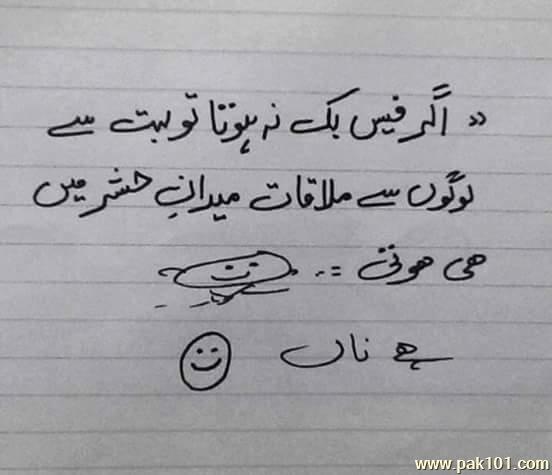 "اگر فیس بک نہ ہوتا تو بہت سے
لوگوں سے ملاقات میدانِ حشر میں
ھی ھوتی =:
ہے ناں
www.pak101.com